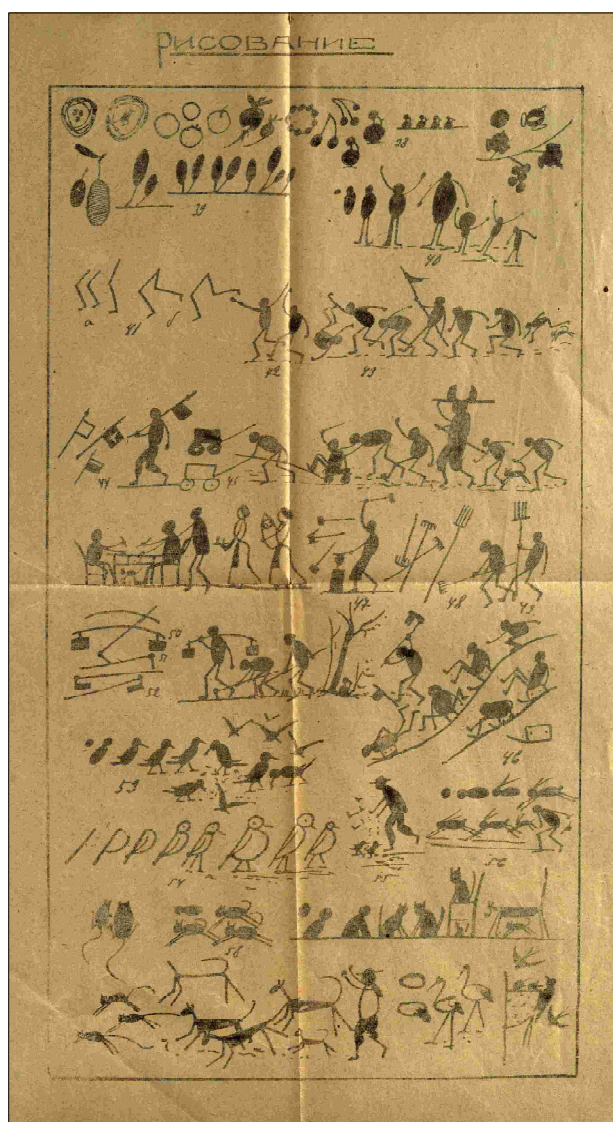 РИСОВАНИЕ
39
40
а
41
б
42
43
44
45
47
48
49
50
51
52
46
53
54
55
56